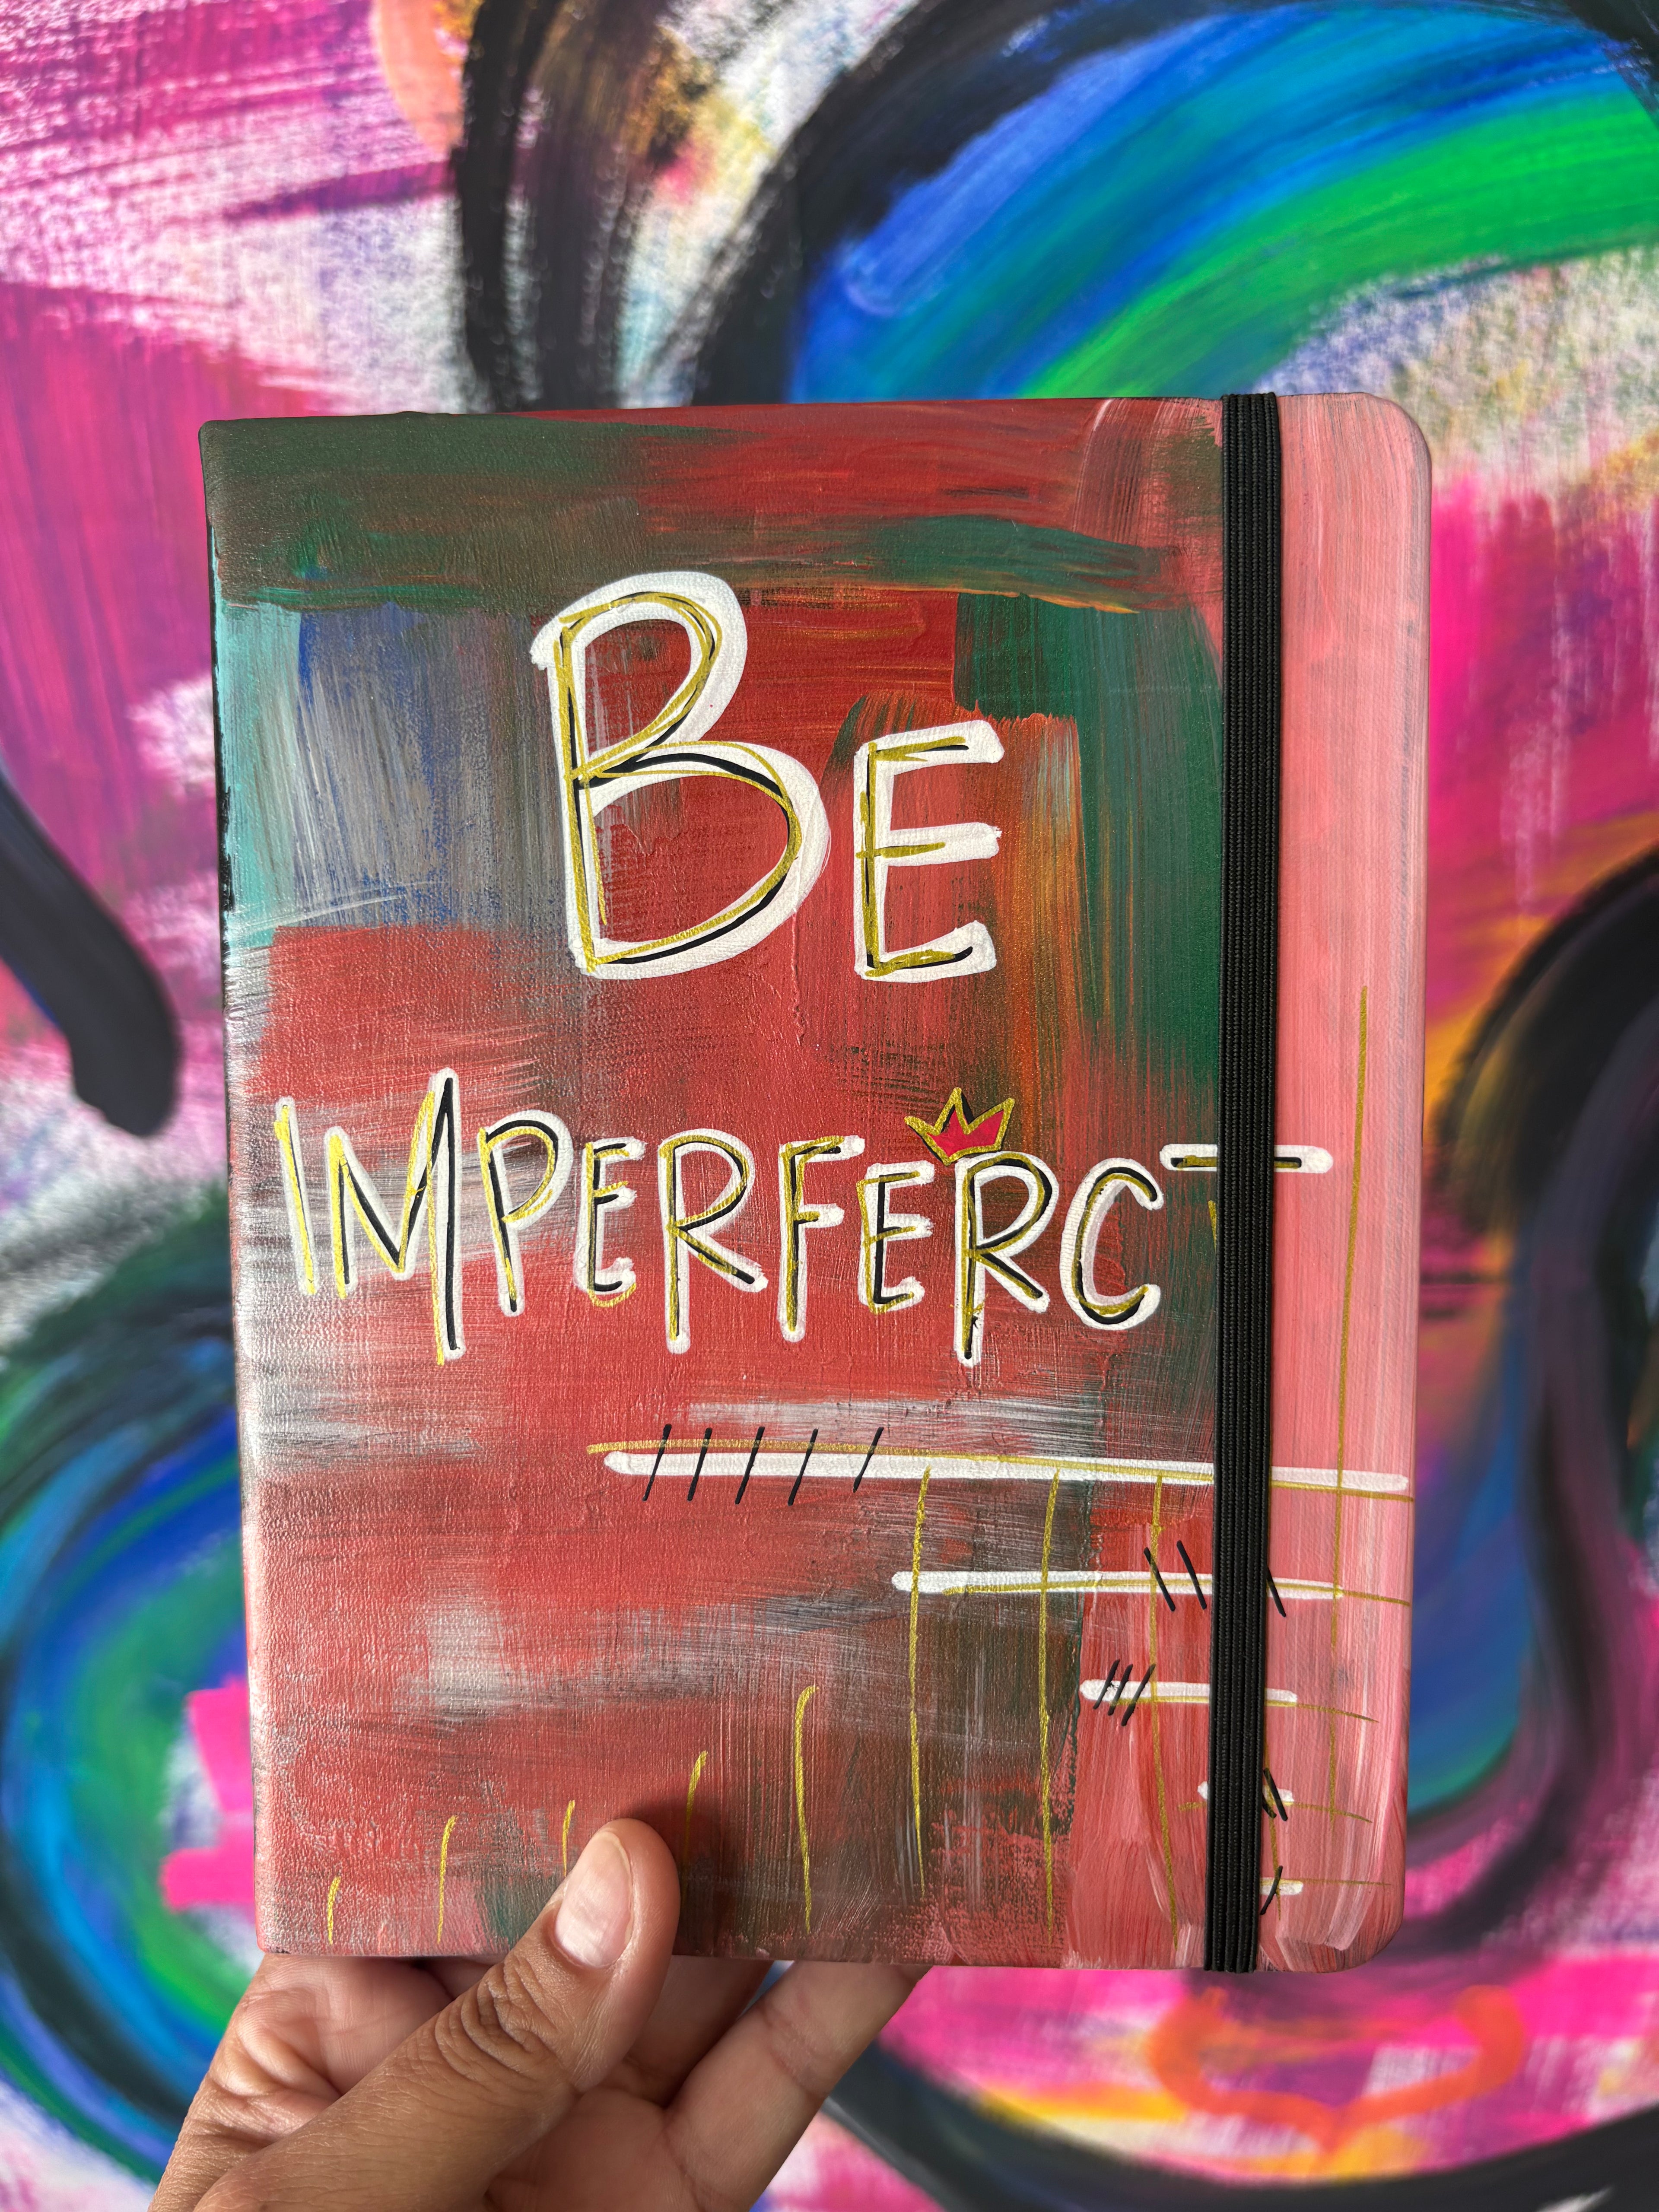 BE
IMPERFERCT